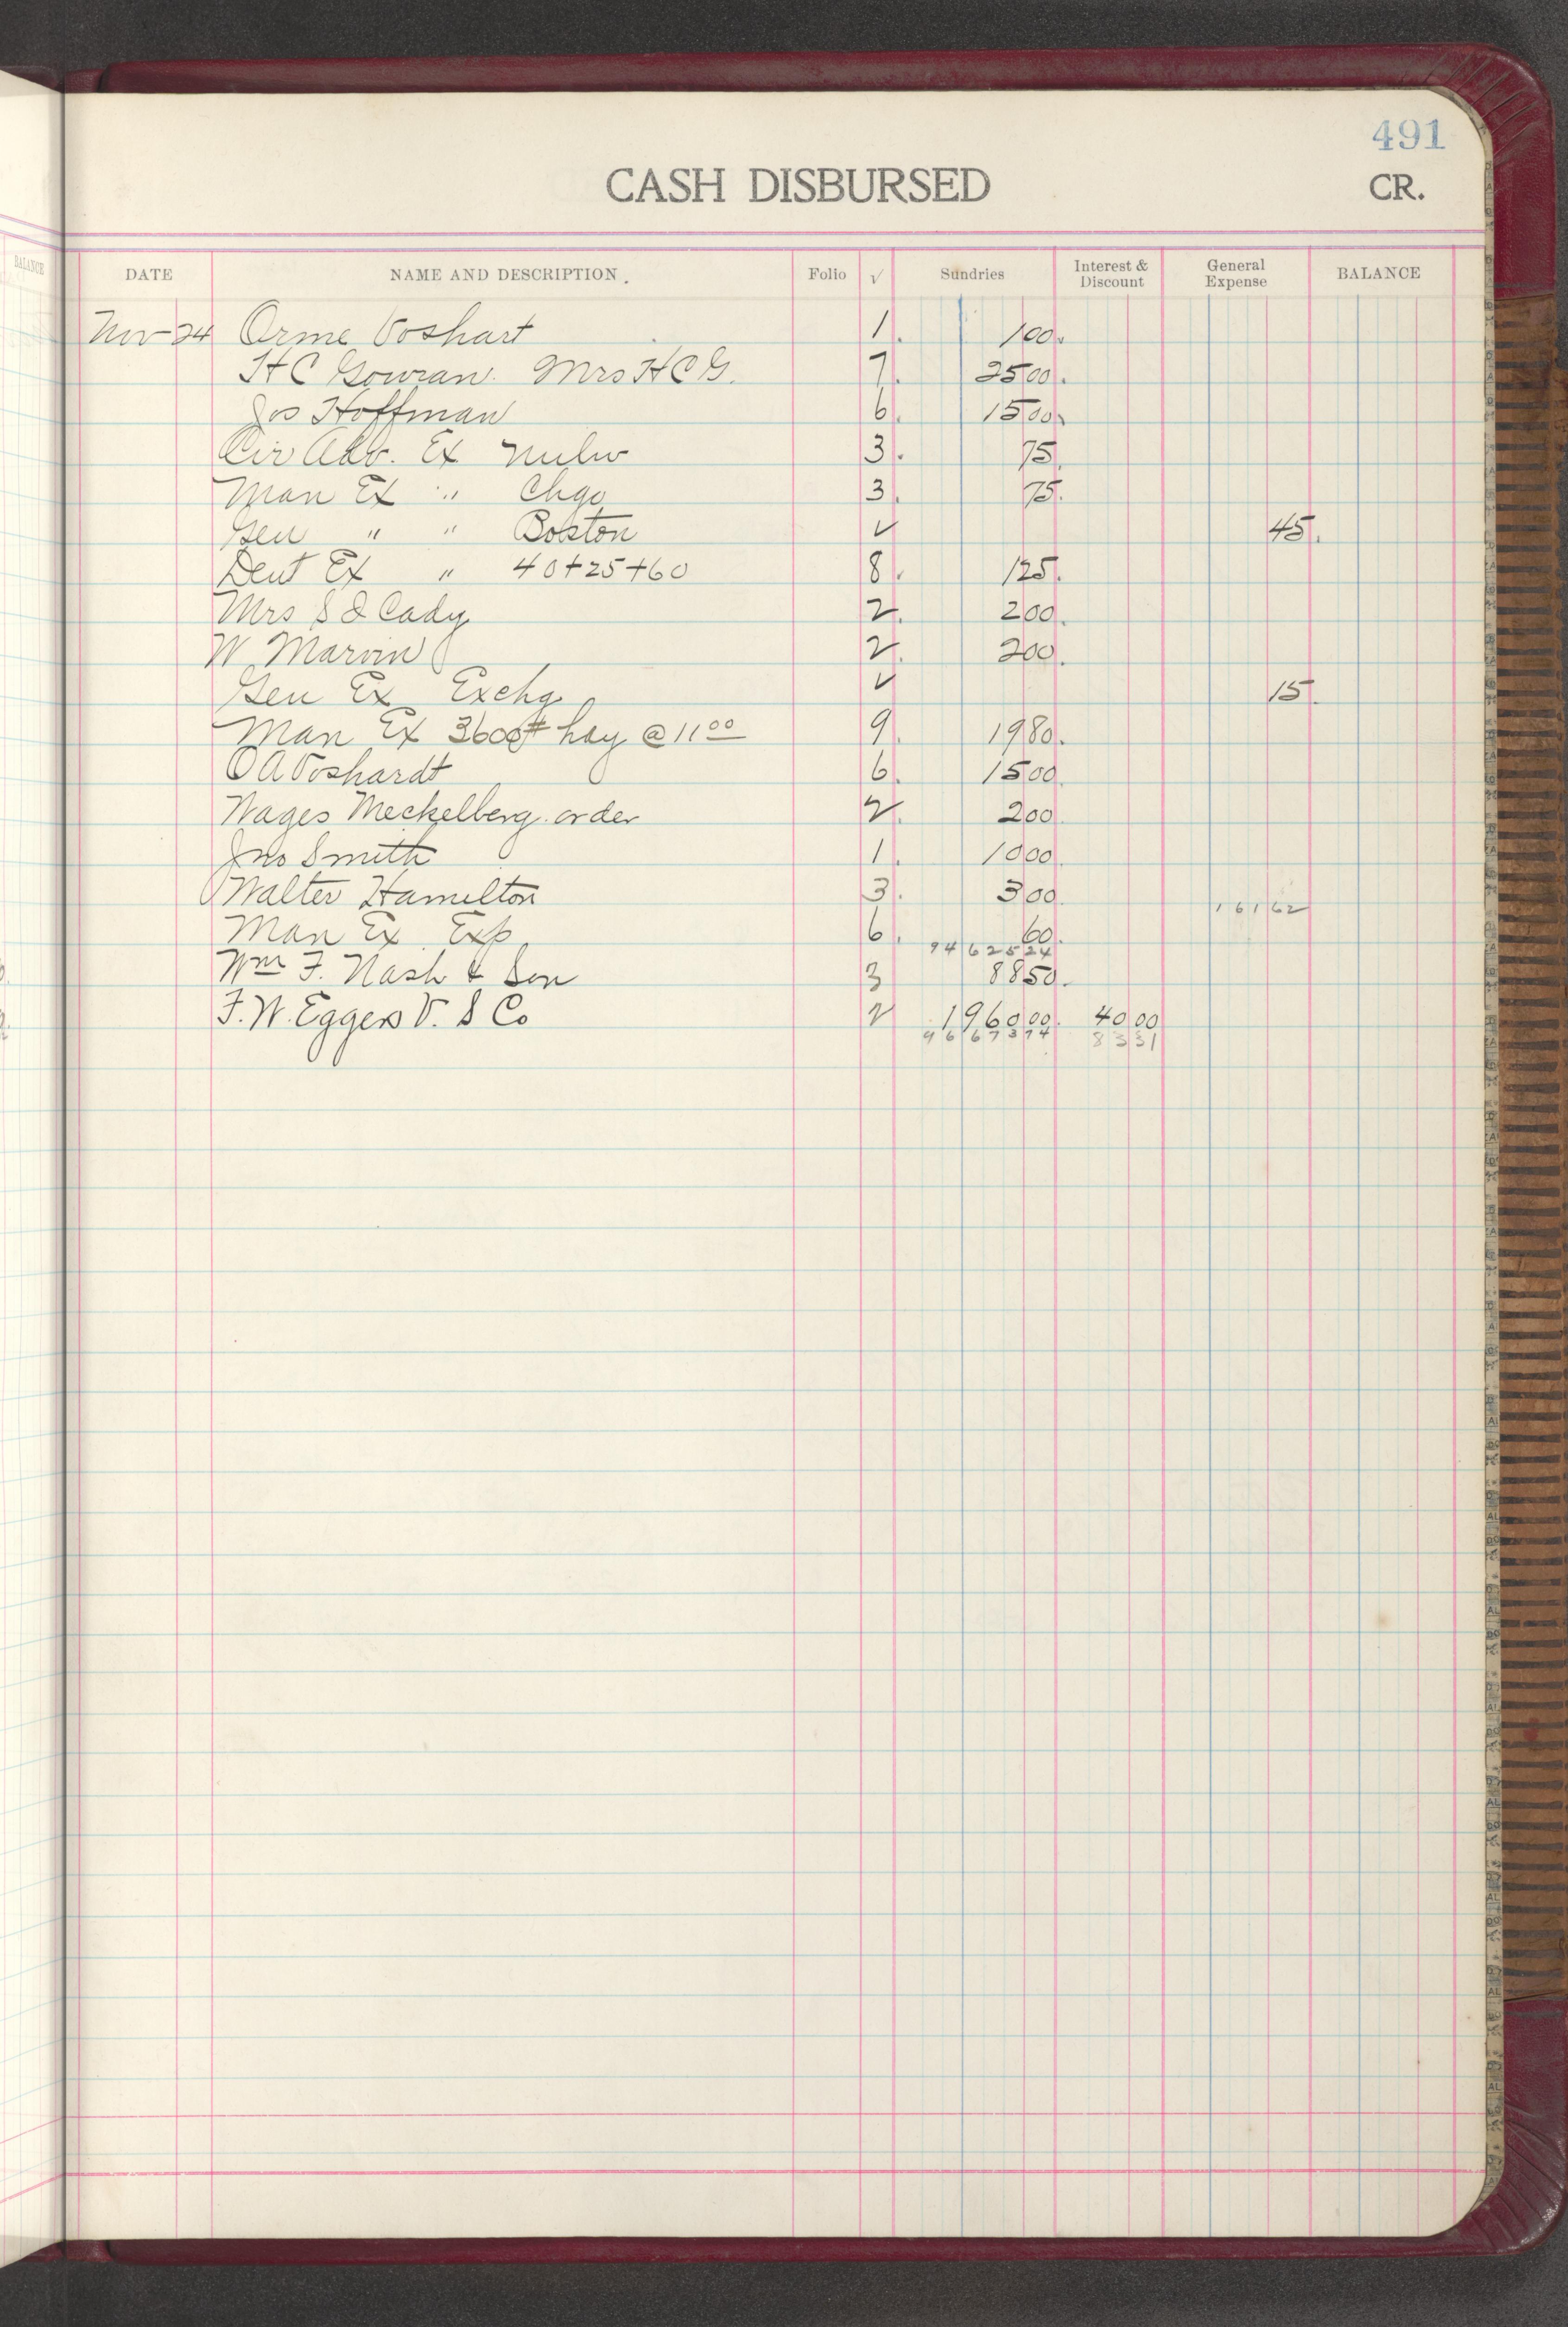 491
CASH DISBURSED CR.
BALANCE DATE NAME AND DESCRIPTION. Folio √ Sundries Interest & Discount General Expense BALANCE
Nov 24 Orme Voshart 1. 100.
H C Gowran. Mrs H C G. 7. 2500.
Jos Hoffman 6. 1500.
Cir Adv. Ex Milw 3. 75.
Man Ex " Chgo 3. 75.
Gen " " Boston ✓ 45.
Dent Ex " 40+25+60 8. 125.
Mrs S J Cady 2. 200.
W Marvin 2. 200.
Gen Ex Exchg ✓ 15.
Man Ex 3600# hay @ 11 00 9. 1980.
O A Voshardt 6. 1500.
Wages Meckelberg order 2. 200.
Jno Smith 1. 1000.
Walter Hamilton 3. 300.
16162
Man Ex Exp 6. 60.
9462524
Wm F. Nash & Son 3 8850.
F. W. Eggers V. S Co 2 196000. 4000
9667374 8331